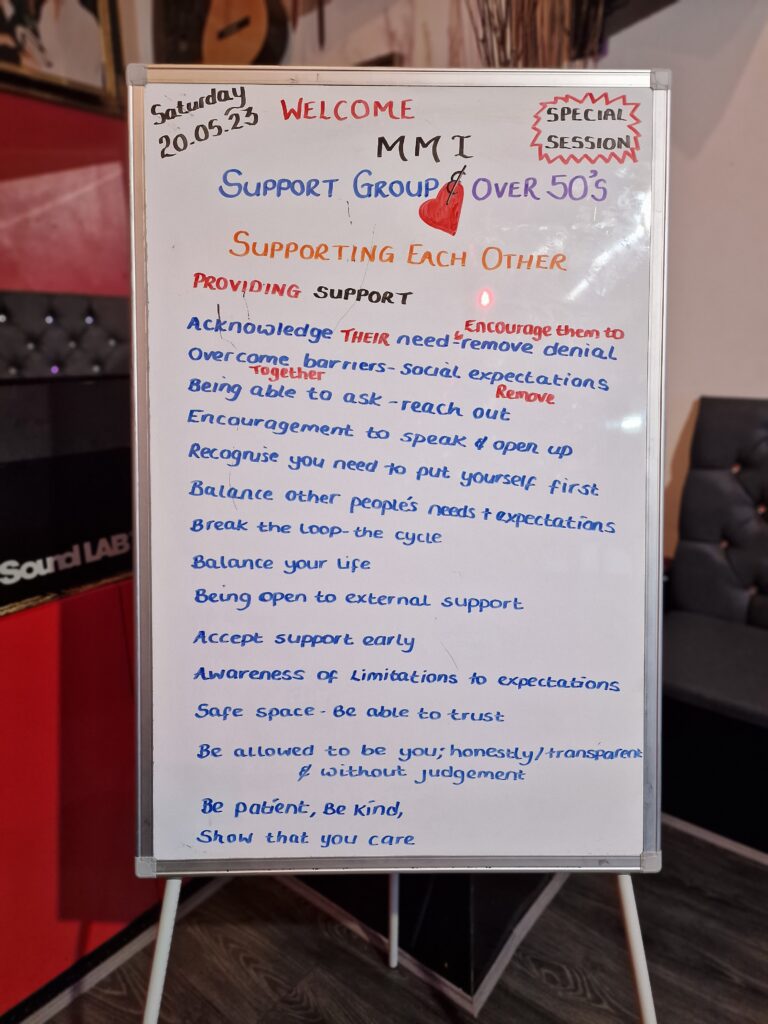 Saturday
20.05.23
WELCOME
SPECIAL
SESSION
MMI
SUPPORT GROUP & OVER 50'S
SUPPORTING EACH OTHER
PROVIDING SUPPORT
Encourage them to
Acknowledge THEIR need - remove denial
Overcome barriers - social expectations
Together
Remove
Being able to ask - reach out
Encouragement to speak & open up
Recognise you need to put yourself first
Balance other people's needs + expectations
Break the loop - the cycle
Balance your life
Being open to external support
Accept support early
Awareness of limitations to expectations
Safe space - Be able to trust
Be allowed to be you; honestly/transparent
& without judgement
Be patient, Be kind,
Show that you care
Sound LAB